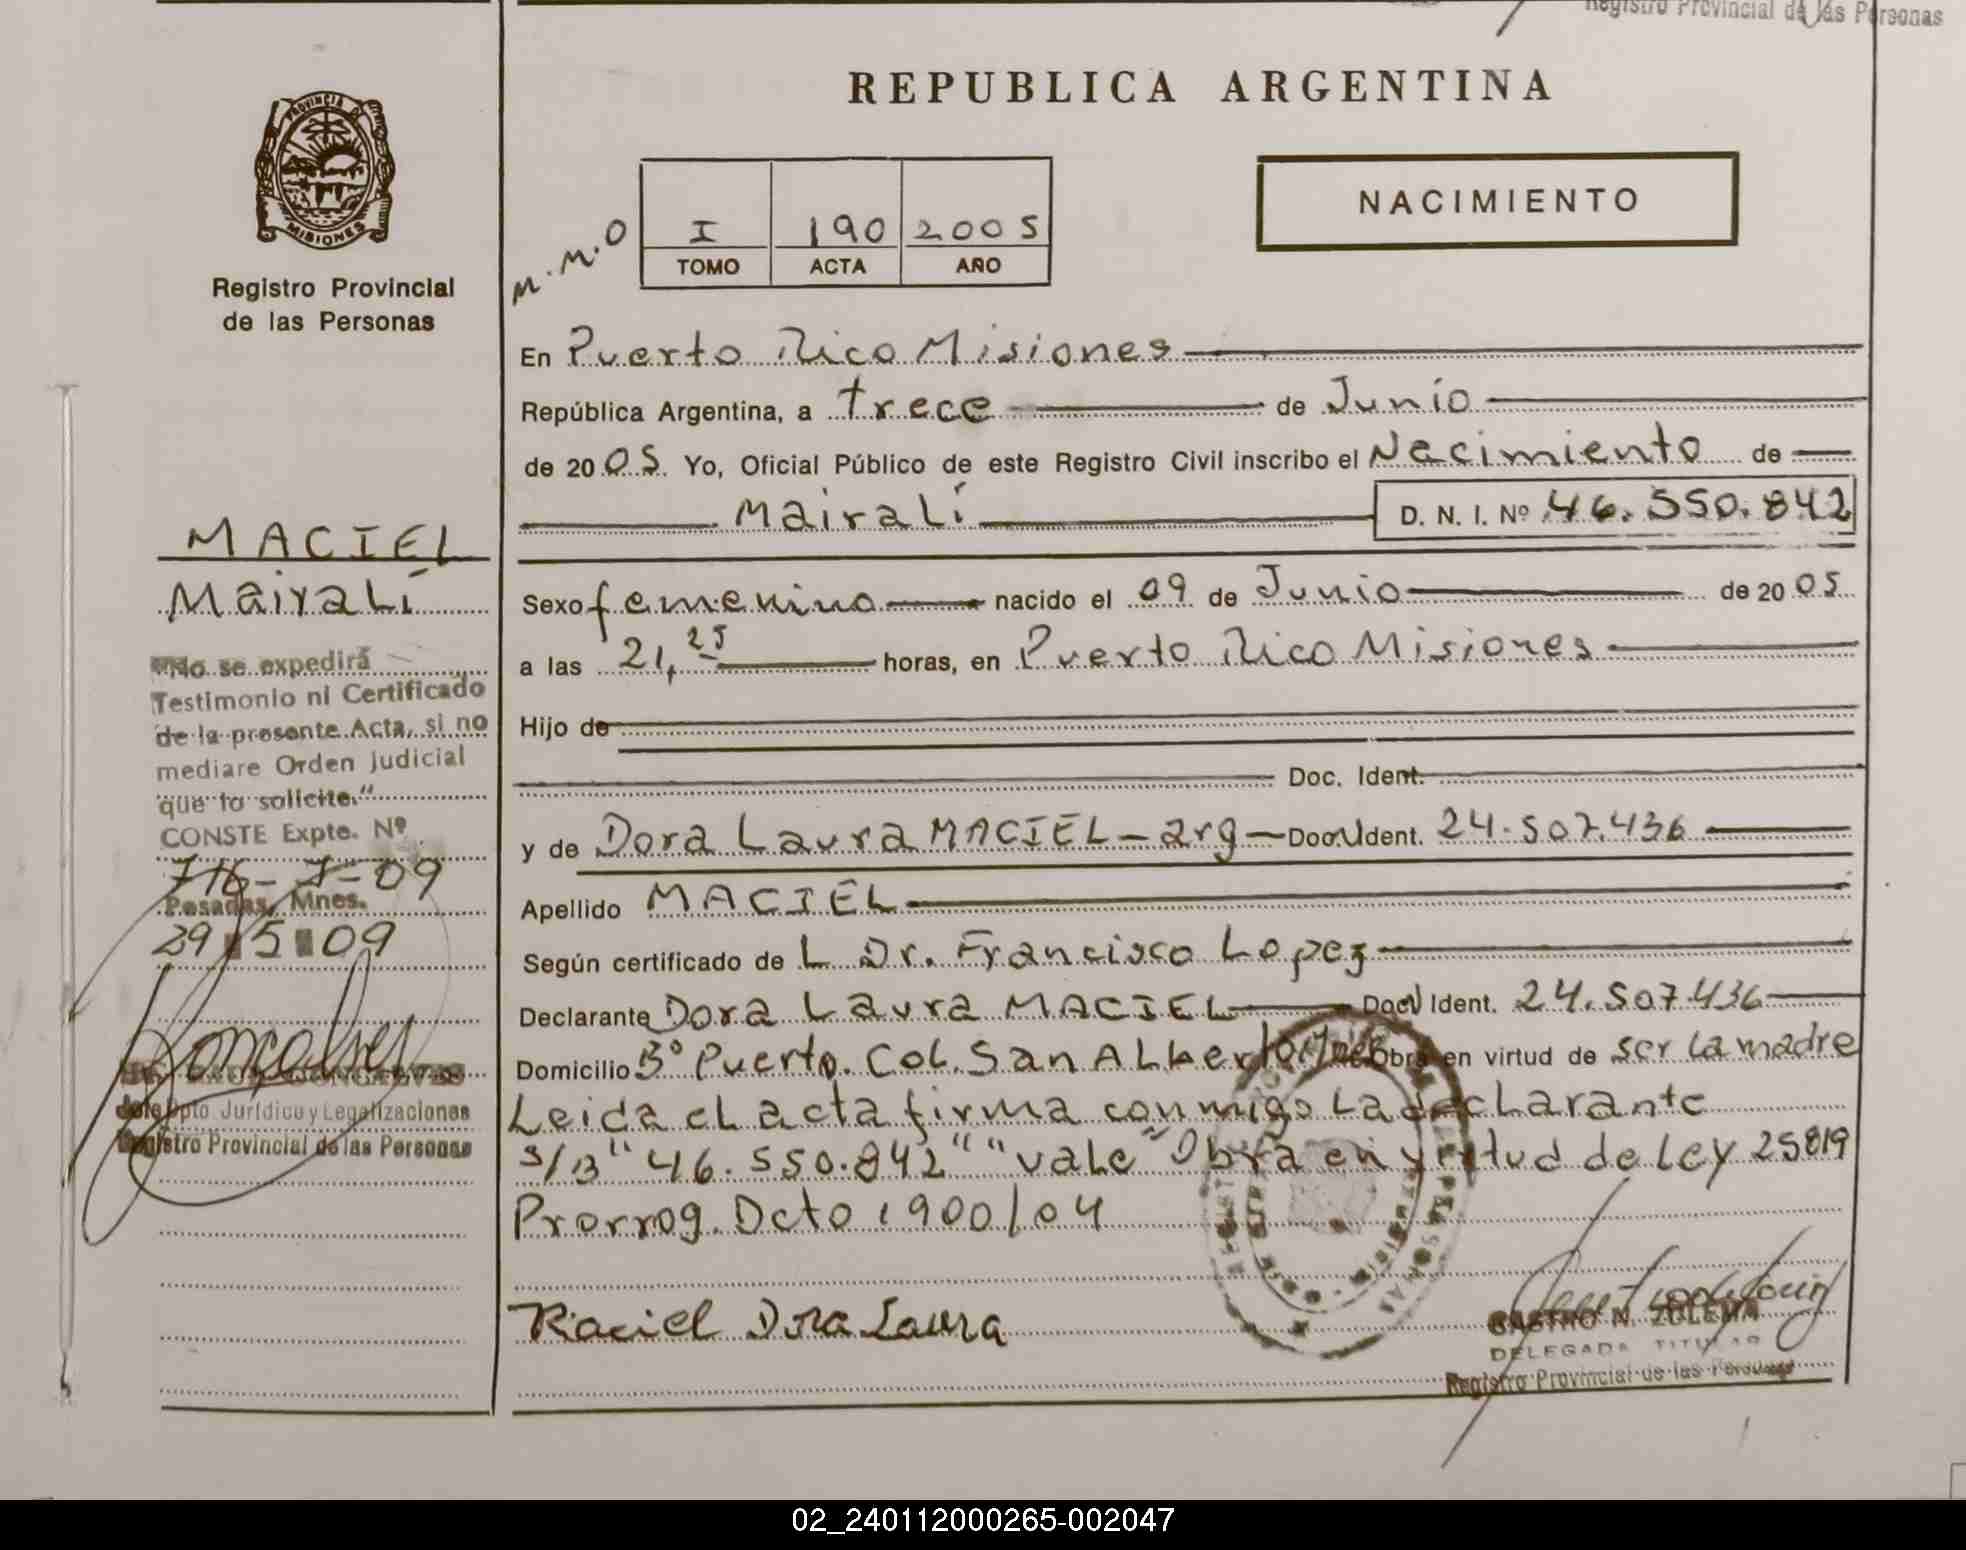 Registro Provincial de las Personas
REPUBLICA ARGENTINA
PROVINCIA DE
MISIONES
Registro Provincial
de las Personas
NACIMIENTO
M.M.O
I 190 2005
TOMO ACTA AÑO
En Puerto Rico Misiones
República Argentina, a trece de Junio
de 2005. Yo, Oficial Público de este Registro Civil inscribo el Nacimiento de
Mairalí D. N. I. Nº 46.550.842
MACIEL
Mairalí
"No se expedirá
Testimonio ni Certificado
de la presente Acta, si no
mediare Orden Judicial
que lo solicite."
CONSTE Expte. Nº
716-J-09
Posadas, Mnes.
29 5 09
Jefe Dpto. Jurídico y Legalizaciones
Registro Provincial de las Personas
Sexo femenino nacido el 09 de Junio de 2005
a las 21,25 horas, en Puerto Rico Misiones
Hijo de
Doc. Ident.
y de Dora Laura MACIEL - arg - Doc. Ident. 24.507.436
Apellido MACIEL
Según certificado de L Dr. Francisco Lopez
Declarante Dora Laura MACIEL Doc. Ident. 24.507.436
Domicilio 3º Puerto. Col. San Alberto Mnes Obra en virtud de ser la madre
Leida el acta firma conmigo la declarante
S/B "46.550.842" "vale" Obra en virtud de Ley 25819
Prorrog. Dcto 1900/04
Maciel Dora Laura
CASTRO N. ZULEMA
DELEGADA TITULAR
Registro Provincial de las Personas
02_240112000265-002047